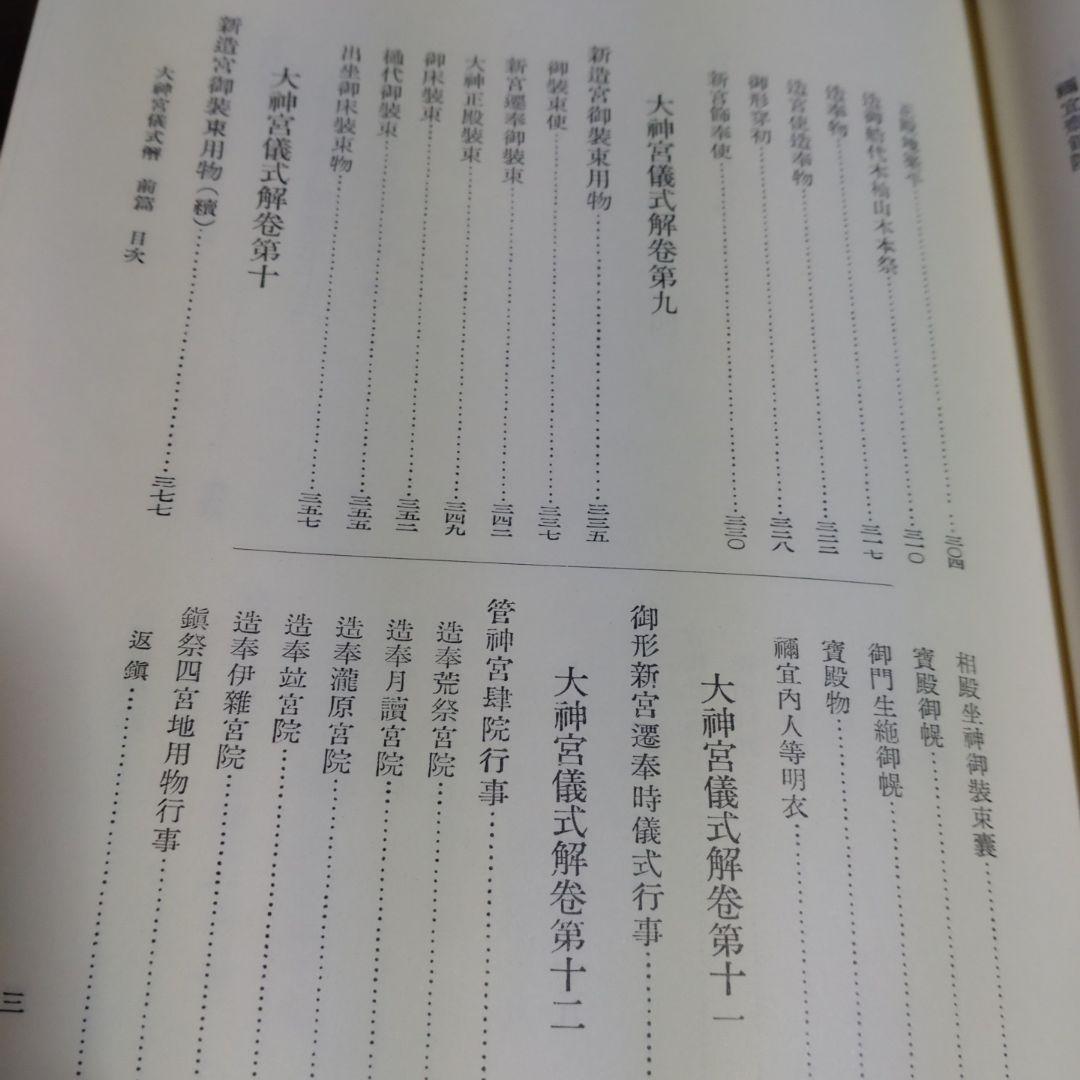 造御船代木檜山木本祭…三一〇
造奉物…三一七
造宮使造奉物…三二二
御形穿初…三二八
新宮飾奉使…三三〇
大神宮儀式解卷第九
新造宮御裝束用物…三三五
御裝束使…三三七
新宮遷奉御裝束…三四二
大神正殿裝束…三四九
御床裝束…三五二
樋代御裝束…三五五
出坐御床裝束物…三五七
大神宮儀式解卷第十
新造宮御裝束用物(續)…三七七
相殿坐神御裝束囊
寶殿御幌
御門生絁御幌
寶殿物
禰宜內人等明衣
大神宮儀式解卷第十一
御形新宮遷奉時儀式行事
大神宮儀式解卷第十二
管神宮肆院行事
造奉荒祭宮院
造奉月讀宮院
造奉瀧原宮院
造奉竝宮院
造奉伊雜宮院
鎭祭四宮地用物行事
返鎭
大神宮儀式解 前篇 目次
三